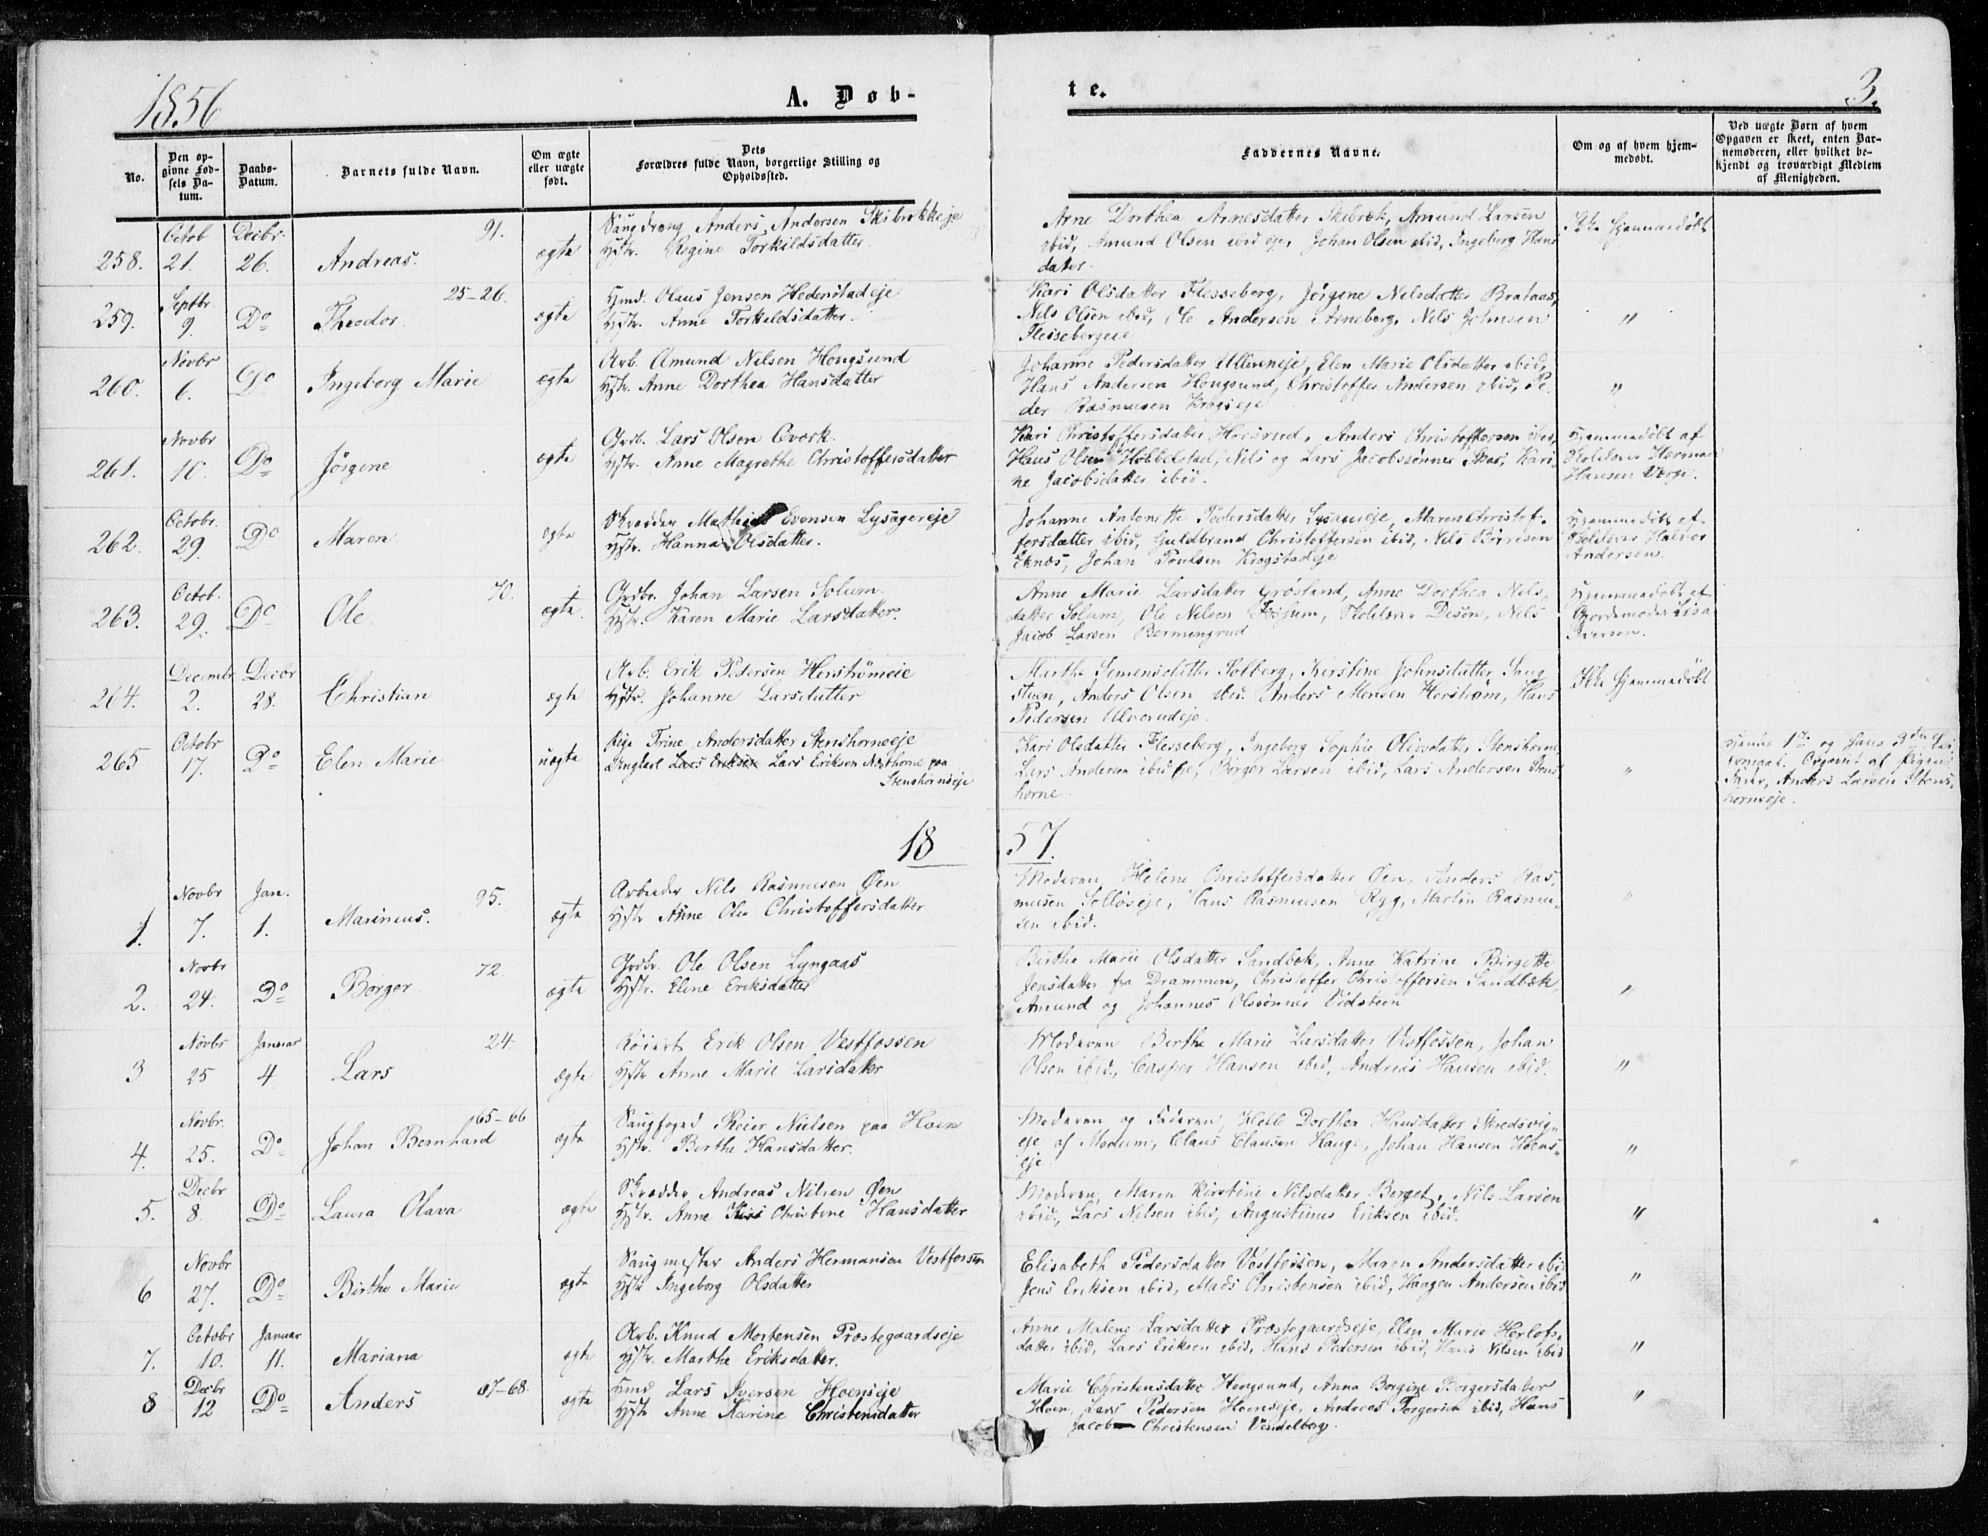 1856
A. Døb-
te.
3.
No.
Den op-
givne Fød-
sels Da-
tum.
Daabs-
Datum.
Barnets fulde Navn.
Om ægte
eller uægte
født.
Dets
Forældres fulde Navn, borgerlige Stilling og
Opholdssted.
Faddernes Navne.
Om og af hvem hjem-
medøbt.
Ved uægte Børn af hvem
Opgaven er skeet, enten Bar-
nemoderen, eller hvilket be-
kjendt og troværdigt Medlem
af Menigheden.
258. Octob 21. Decbr. 26. Andreas. 91. ægte
Saugdreng Anders Andersen Skibrekkeje
Hstr. Regine Torkildsdatter
Anne Dorthea Arnesdatter Skibrek, Amund Larsen
ibid, Amund Olsen ibid eje, Johan Olsen ibid, Ingeborg Hans
datter.
Ikke hjemmedøbt
259. Septbr 9. Do Theodor. 25-26. ægte
Hmd. Olaus Jensen Hedenstadeje
Hstr. Anne Torkildsdatter.
Kari Olsdatter Flesseberg, Jørgine Nilsdatter Brataas,
Nils Olsen ibid, Ole Andersen Arneberg, Nils Johnsen
Flessebergeie
"
260. Novbr 6. Do Ingeborg Marie ægte
Arb. Amund Nilsen Hougsund
Hstr. Anne Dorthea Hansdatter
Johanne Pedersdatter Ullereneje, Elen Marie Olsdatter ibid,
Hans Andersen Hougsund, Christoffer Andersen ibid, Pe-
der Rasmusen Krogseje
"
261. Novbr 10. Do Jørgine ægte
Grdb. Lars Olsen Qværk.
Hstr. Anne Magrethe Christoffersdatter
Kari Christoffersdatter Horsrud, Anders Christoffersen ibid,
Hans Olsen Hobbelstad, Nils og Lars Jacobssønner Skar, Kari-
ne Jacobsdatter ibid.
Hjemmedøbt af
Skolelærer Herman
Hansen Varge.
262. Octobr. 29. Do Maren ægte
Skrædder Mathias Evensen Lysagereje
Hstr. Hanna Olsdatter.
Johanne Antonette Pedersdatter Lysagereje, Maren Christof-
fersdatter ibid, Guldbrand Christoffersen ibid, Nils Børresen
Eknæs, Johan Poulsen Krogstadeje
Hjemmedøbt af
Skolelærer Halvor
Andersen.
263. Octob. 29. Do Ole 70. ægte
Grdbr. Johan Larsen Solum.
Hstr. Karen Marie Larsdatter.
Anne Marie Larsdatter Grøsland, Anne Dorthea Nils-
datter Solum, Ole Nilsen Fossum, Skolelærer Desen, Nils
Jacob Larsen Bermingrud
Hjemmedøbt af
Gjordemoder Lisa
Iversen.
264. Decembr 2. Decbr 28. Christian ægte
Arb. Erik Pedersen Herstrømeie
Hstr. Johanne Larsdatter
Marthe Simensdatter Solberg, Kerstine Johnsdatter Snug
stuen, Anders Olsen ibid. Anders Monsen Herstrøm, Hans
Pedersen Ulverudeje.
Ikke hjemmedøbt
265 Octobr 17. Do Elen Marie uægte
Pige Trine Andersdatter Stenshorneeje
Ungkarl Lars Eriksen Lars Eriksen Nesthorne paa
Stenshorneeje
Kari Olsdatter Flesseberg, Ingeborg Sophie Olausdatter Stenshorne,
Lars Andersen ibid eje, Børger Larsen ibid, Lars Andersen Stens-
horne
"
Hendes 1ste og hans 3die Lei
ermaal. Opgivet af Pigens
Fader, Anders Larsen Stens-
horneeje.
18 57.
1. Novbr 7. Jan. 1. Marinius. 95. ægte
Arbeider Nils Rasmusen Øen
Hstr Anne Olea Christoffersdatter
Moderen, Helene Christoffersdatter Øen, Anders Ras-
musen Solløseje, Hans Rasmusen Ryg, Martin Rasmu-
sen ibid.
"
2. Novbr 24. Do Børger 72 ægte
Grdbr. Ole Olsen Lyngaas
Hstr. Eline Eriksdatter
Birthe Marie Olsdatter Sandbæk, Anne Katrine Birgette
Jensdatter fra Drammen, Christoffer Christoffersen Sandbæk,
Amund og Johannes Olssønner Vidsteen
"
3 Novbr 25 Januar 4 Lars 24 ægte
Røiert Erik Olsen Vestfossen
Hstr Anne Marie Larsdatter
Moderen Berthe Marie Larsdatter Vestfossen, Johan
Olsen ibid., Casper Hansen ibid, Andreas Hansen ibid.
"
4. Novbr. 25. Do Johan Bernhard 65-66 ægte
Saugfoged Reier Nielsen paa Hoen
Hstr. Birthe Hansdatter.
Moderen og Faderen, Helle Dorthea Hansdatter Skredsvig-
eje af Modum, Claus Clausen Hauge, Johan Hansen Hoens-
eje
"
5. Decbr 8. Do Laura Olava ægte
Skrædder Andreas Nilsen Øen
Hstr. Anne Christine Hansdatter
Moderen, Maren Kirstine Nilsdatter Berget, Nils Larsen
ibid., Lars Nilsen ibid, Augustinus Eriksen ibid.
"
6 Novbr 27. Do Birthe Marie ægte
Saugmester Anders Hermansen Vestfossen
Hstr Ingeborg Olsdatter
Elisabeth Pedersdatter Vestfossen, Maren Andersdatter ibid
Jens Eriksen ibid, Mads Christensen ibid, Haagen Andersen ibid
"
7. Octobr 10. Januar 11. Mariana ægte
Arb. Knud Mortensen Prostegaardseje
Hstr. Marthe Eriksdatter.
Anne Malene Larsdatter Præstegaardseje, Elen Marie Herlofs-
datter ibid, Lars Eriksen ibid, Hans Pedersen ibid, Hans Nilsen ibid
"
8 Decbr 12 Do Anders 67-68. ægte
Hmd Lars Iversen Hoenseje
Hstr Anne Karine Christensdatter
Marie Christensdatter Hougsund, Anna Borgine Borgersdatter
Hoen, Lars Pedersen Hoenseje, Andreas Torgersen ibid, Hans
Jacob Christensen Vendelborg.
"